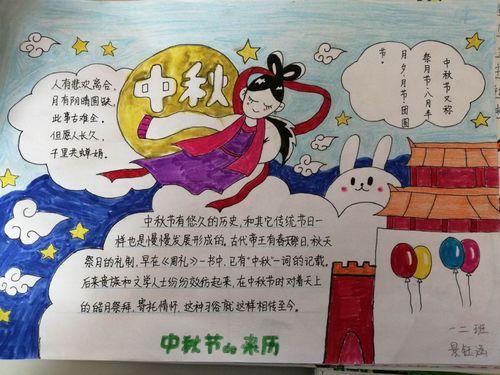 人有悲欢离合，
月有阴晴圆缺，
此事古难全．
但愿人长久，
千里共蝉娟．
中秋
中秋节又称
祭月节、八月半、
月夕、月节、团圆
节．
中秋节有悠久的历史，和其它传统节日一
样也是慢慢发展形成的，古代帝王有春祭日，秋天
祭月的礼制，早在《周礼》一书中，已有"中秋"一词的记载，
后来贵族和文学人士纷纷效仿起来，在中秋节时对着天上
的皓月祭拜，寄托情怀，这种习俗就这样相传至今。
中秋节的来历
一二班
景钰涵